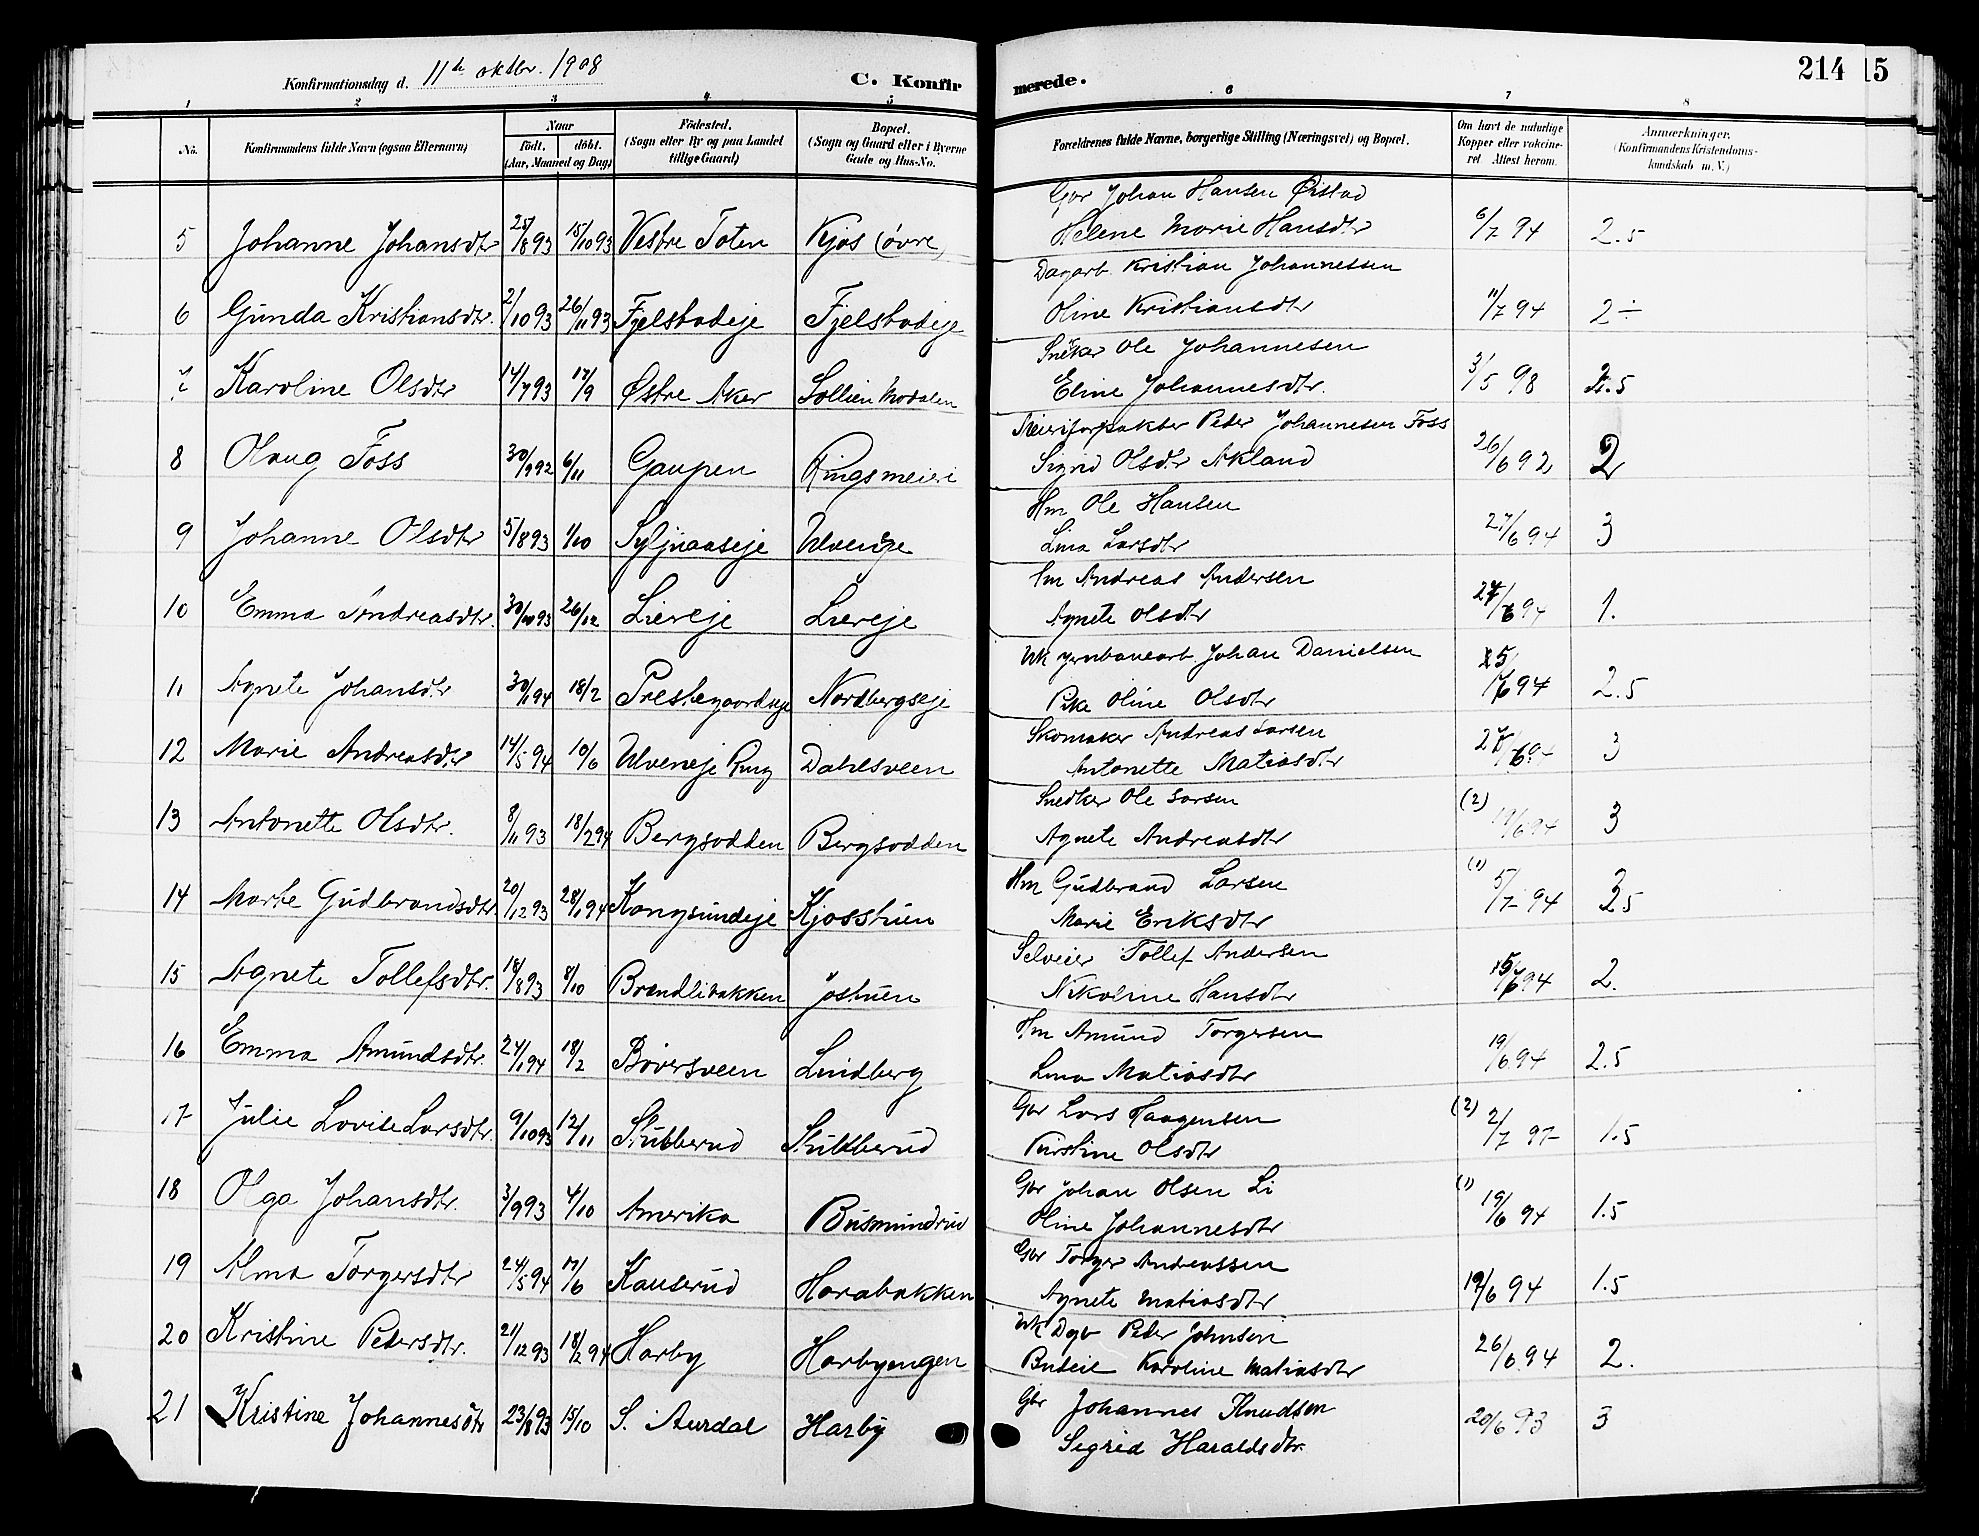 Konfirmationsdag d. 11te oktbr. 1908
C. Konfirmerede.
214
15
1 2 3 4 5 6 7 8
No.
Konfirmandens fulde Navn (ogsaa Efternavn)
Naar
födt. döbt.
(Aar, Maaned og Dag)
Födested.
(Sogn eller By og paa Landet
tillige Gaard)
Bopæl.
(Sogn og Gaard eller i Byerne
Gade og Hus-No.
Forældrenes fulde Navne, borgerlige Stilling (Næringsvei) og Bopæl.
Om havt de naturlige
Kopper eller vakcine-
ret. Attest herom.
Anmærkninger.
(Konfirmandens Kristendoms-
kundskab m. V.)
Gbr Johan Hansen Øistad
5 Johanne Johansdtr 25/8 93 15/10 93 Vestre Toten Kjos (övre) Helene Marie Hansdtr 6/7 94 2.5
Dagarb. Kristian Johannessen
6 Gunda Kristiansdtr. 2/10 93 26/11 93 Fjelstadeje Fjelstadeje Oline Kristiansdtr 11/7 94 2÷
Snekar Ole Johannesen
7 Karoline Olsdtr 14/7 93 17/9 Østre Aker Sollien Modalen Eline Johannesdtr. 31/5 98 2.5
Meieriforpakter Peder Johannesen Foss
8 Olaug Foss 30/9 92 6/11 Gaupen Ringsmeieri Sigrid Olsdtr Akland 26/6 92 2
Hm Ole Hansen
9 Johanne Olsdtr 5/8 93 1/10 Syljuaaseje Ulvenje Lina Larsdtr 27/6 94 3
Hm Andreas Andersen
10 Emma Andreasdtr. 30/10 93 26/12 Liereje Liereje Agnete Olsdtr 27/6 94 1.
Uk jernbanearb Johan Danielsen
11 Agnete Johansdtr 30/1 94 18/2 Prestegaardseje Nordbergseje Pike Oline Olsdtr 94 2.5
Skomaker Andreas Larsen
12 Marie Andreasdtr 14/5 94 10/6 Ulveneje Ring Dahlsveen Antonette Matiasdtr 3
Snedker Ole Larsen
13 Antonette Olsdtr. 8/11 93 18/2 94 Bergsodden Bergsodden Agnete Andreasdtr (2) 19/6 94 3
Hm Gudbrand Larsen
14 Marte Gudbrandsdtr 20/12 93 28/1 94 Kongsundeje Kjosstuen Marie Eriksdtr (1) 5/7 94 2.5
Selveier Tollef Andersen
15 Agnete Tollefsdtr. 18/8 93 8/10 Brændlibakken Jostuen Nikoline Hansdtr 94 2.
Hm Amund Torgersen
16 Emma Amundsdtr. 24/1 94 18/2 Böversveen Lindberg Lina Matiasdtr 19/6 94 2.5
Gbr Lars Haagensen
17 Julie Lovise Larsdtr. 9/10 93 12/11 Stubberud Stubberud Kirstine Olsdtr (2) 2/7 97 1.5
Gbr Johan Olsen Li
18 Olga Johansdtr. 3/9 93 4/10 Amerika Busmundrud Oline Johannesdtr (1) 19/6 94 1.5
Gbr Torger Andreassen
19 Alma Torgersdtr 24/5 94 17/6 Kauserud Harabakken Agnete Matiasdtr 19/6 94 1.5
Uk Dgb Peder Johnsen
20 Kristine Pedersdtr. 21/12 93 18/2 94 Harby Harbyengen Budeie Karoline Matiasdtr 26/6 94 2.
Gbr Johannes Knudsen
21 Kristine Johannesdtr 23/8 93 15/10 S. Aurdal Harby Sigrid Haraldsdtr. 20/6 93 3